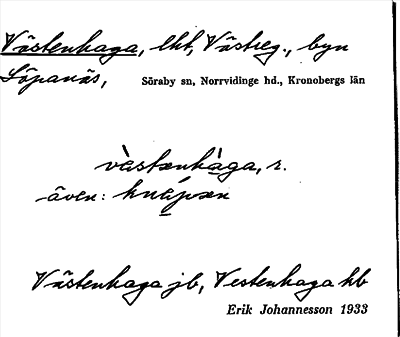 Västenhaga, lht, Västreg., byn
Löpanäs, Söraby sn, Norrvidinge hd., Kronobergs län
västənhàga, r.
även: knápən
Västenhaga jb, Vestenhaga hb
Erik Johannesson 1933